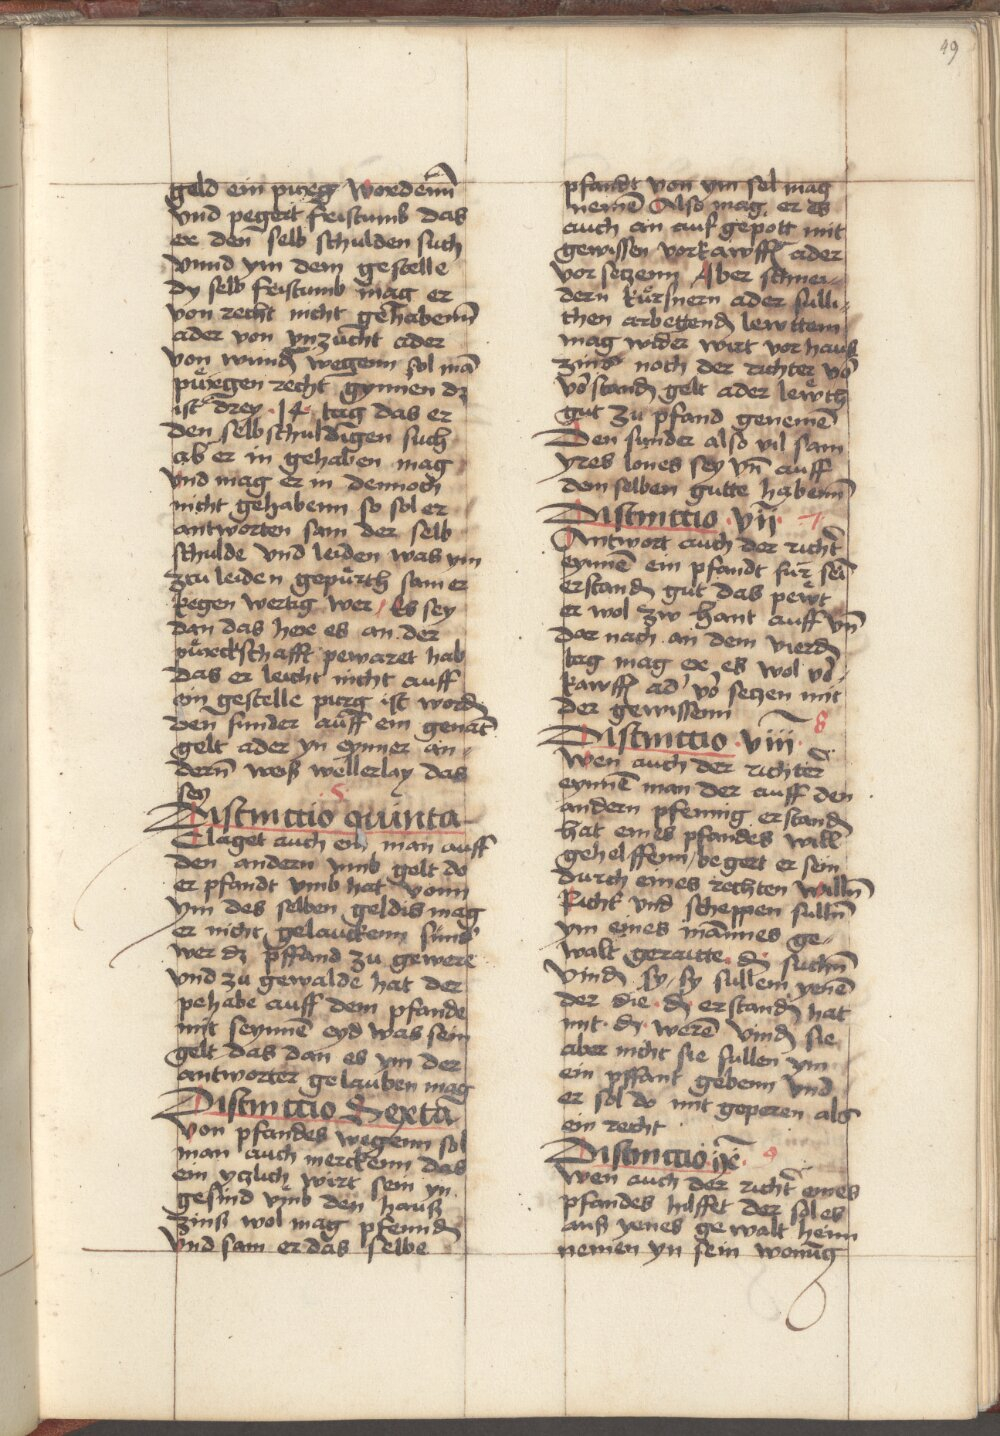 49
geld ein purg wordenn
vnd pegert fristumb das
er den selb schulden such
vnnd ym dem gestelle
dy selb fristumb mag er
von recht nicht gehabenn
ader von vnzucht ader
von wundn wegenn sol mā
pürgen recht gynnen dz
ist drey 14 tag das er
den selbschuldigen such
ab er in gehaben mag
vnd mag er in dennoch
nicht gehabenn so sol er
antworten sam der selb
schulde vnd leiden was ym
zcu leiden gepürth sam er
kegen wertig wer / Es sey
dan das here es an der
pürckschafft pewaret hab
das er leicht nicht auff
ein gestelle purg ist wordn
den sunder auff ein genāt
gelt ader yn eynner an-
dernn weiß wellerlay das
sey
5
Distinctio quinta
Claget auch ein man auff
den andern vmb gelt do
er pfandt vmb hat vonn
ym des selben geldis mag
er nicht gelauckenn sund'
wer dz pffand zu gewere
vnd zu gewalde hat der
pehabe auff dem pfande
mit seynnē eyd was sein
gelt das dan es ym der
antworter gelauben mag
Distinctio Sexta
Von pfandes wegenn sol
man auch merckenn das
ein yczlich wirt sein yn
gesind vmb den hauß
zinß wol mag pfenndn
Vnd sam er das selbe
pfandt von ym sel mag
nemē Also mag er es
auch an auf gepott mit
gewissen vorkawffn ader
vor seczenn Aber schnei-
dern kürsnern ader sulli-
chen arbettendn lewttenn
mag wider wirt vor hauß
zinß noch der richter vō
vōstandn gelt ader lewth
gut zu pfand genemē
Den sunder also vil sam
yres lones sey vn auff
dem selben gutte habenn
Distinctio vii 7
Antwort auch der richt'
eynnē ein pfandt fur sein
erstandn gut das pewt
er wol zw hant auff vn
dor nach an dem vierdn
tag mag er es wol vō
kawffn ad' vō seczen mit
der gewissenn
8
Distinctio viii
Wen auch der richter
eynnē man der auff den
andern pfennig erstandn
hat eines pfandes will
gehelffenn / begert er sein
durch eines rechten willn
Richt' vnd scheppen sulln
ym eines mannes ge-
walt geratte dn suchn
vindn sy / sy sullem yenē
der die dn erstandn hat
mit dn werē vindn sie
aber nicht sie sullen ym
ein pffant gebenn vnd
er sol do mit geperen als
ein recht
Distinctio ix 9
Wen auch der richt' eines
pfandes hilffet der sol es
auß yenes gewalt henn
nemen yn sein wonūg